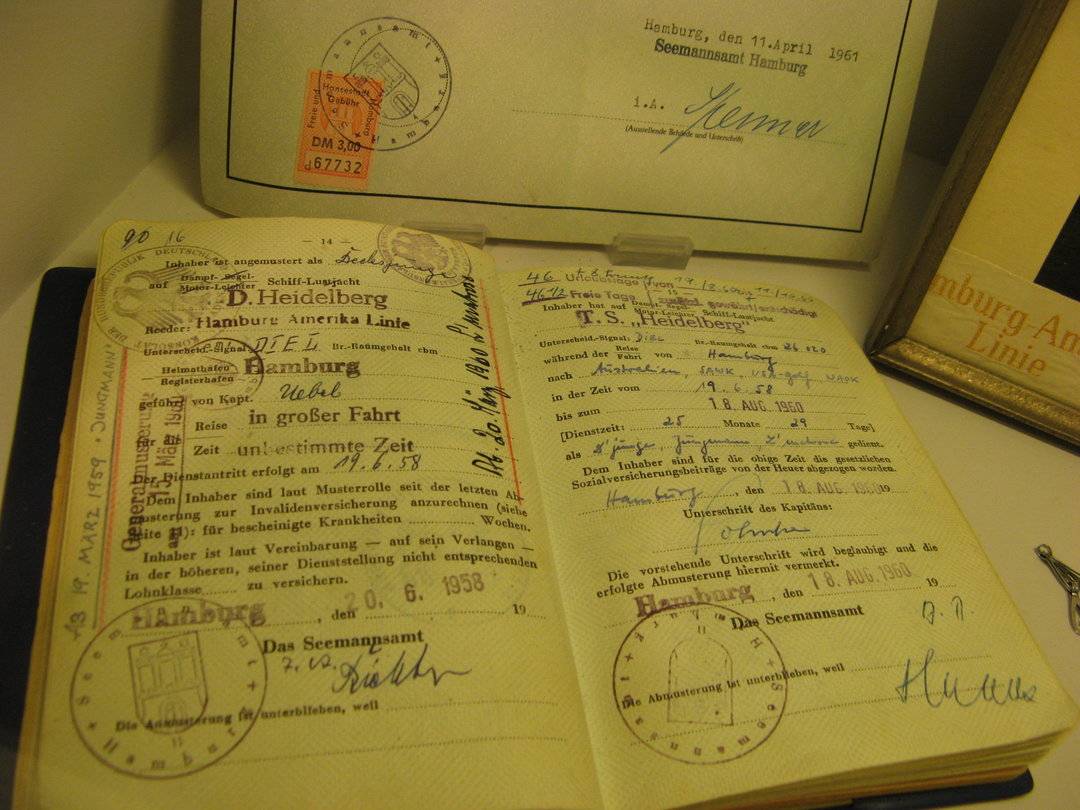 Hamburg, den 11.April 1961
Seemannsamt Hamburg
i.A.
(Ausstellende Behörde und Unterschrift)
Freie und Hansestadt Hamburg
Gebühr
DM 3,00
67732
mburg-Am
Linie
90 16
— 14 —
Inhaber ist angemustert als Decksjunge
auf Dampf- Segel- Motor-Leichter Schiff-Lustjacht
D. Heidelberg
Reeder: Hamburg Amerika Linie
Unterscheid.-Signal DIEL Br.-Raumgehalt cbm
Heimathafen
Registerhafen Hamburg
geführt von Kapt. Uebel
für die Reise in großer Fahrt
auf Zeit unbestimmte Zeit
Der Dienstantritt erfolgt am 19.6.58
Dem Inhaber sind laut Musterrolle seit der letzten Ab-
musterung zur Invalidenversicherung anzurechnen (siehe
Seite 31): für bescheinigte Krankheiten Wochen.
Inhaber ist laut Vereinbarung — auf sein Verlangen —
in der höheren, seiner Dienststellung nicht entsprechenden
Lohnklasse zu versichern.
Hamburg, den 20. 6. 1958 19
Das Seemannsamt
Die Anmusterung ist unterblieben, weil
AB 19. MÄRZ 1959 "JUNGMANN"
Generalmusterung
Ab. 20. März 1960
46
46 1/2 Freie Tage
15
Inhaber hat auf Dampf- Segel- Motor-Leichter Schiff-Lustjacht
T. S. „Heidelberg"
Unterscheid.-Signal: DIEL Br.-Raumgehalt cbm 26 020
während der Reise Fahrt von Hamburg
nach Australien, SAWK, USA-golf, WAOK
in der Zeit vom 19.6.58
bis zum 18. AUG. 1960
[Dienstzeit: 25 Monate 29 Tage]
als D'junge, Jungmann, gedient.
Dem Inhaber sind für die obige Zeit die gesetzlichen
Sozialversicherungsbeiträge von der Heuer abgezogen worden.
Hamburg, den 18. AUG. 1960 19
Unterschrift des Kapitäns:
Die vorstehende Unterschrift wird beglaubigt und die
erfolgte Abmusterung hiermit vermerkt.
Hamburg, den 18. AUG. 1960 19
Das Seemannsamt
Die Abmusterung ist unterblieben, weil